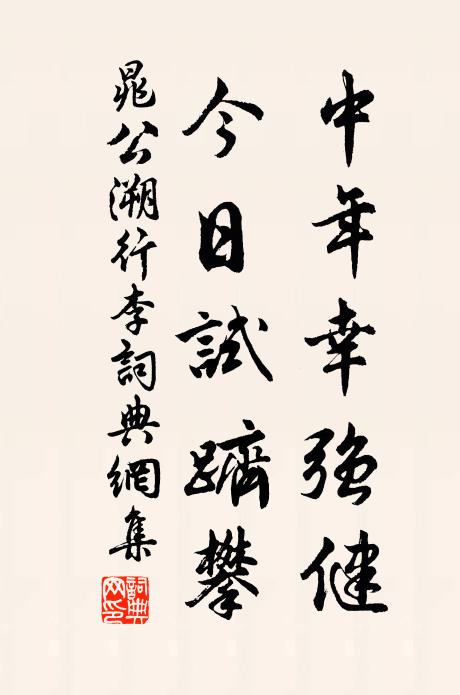 中年幸強健
今日試躋攀
晁公溯行李詞典網集
詞典網印